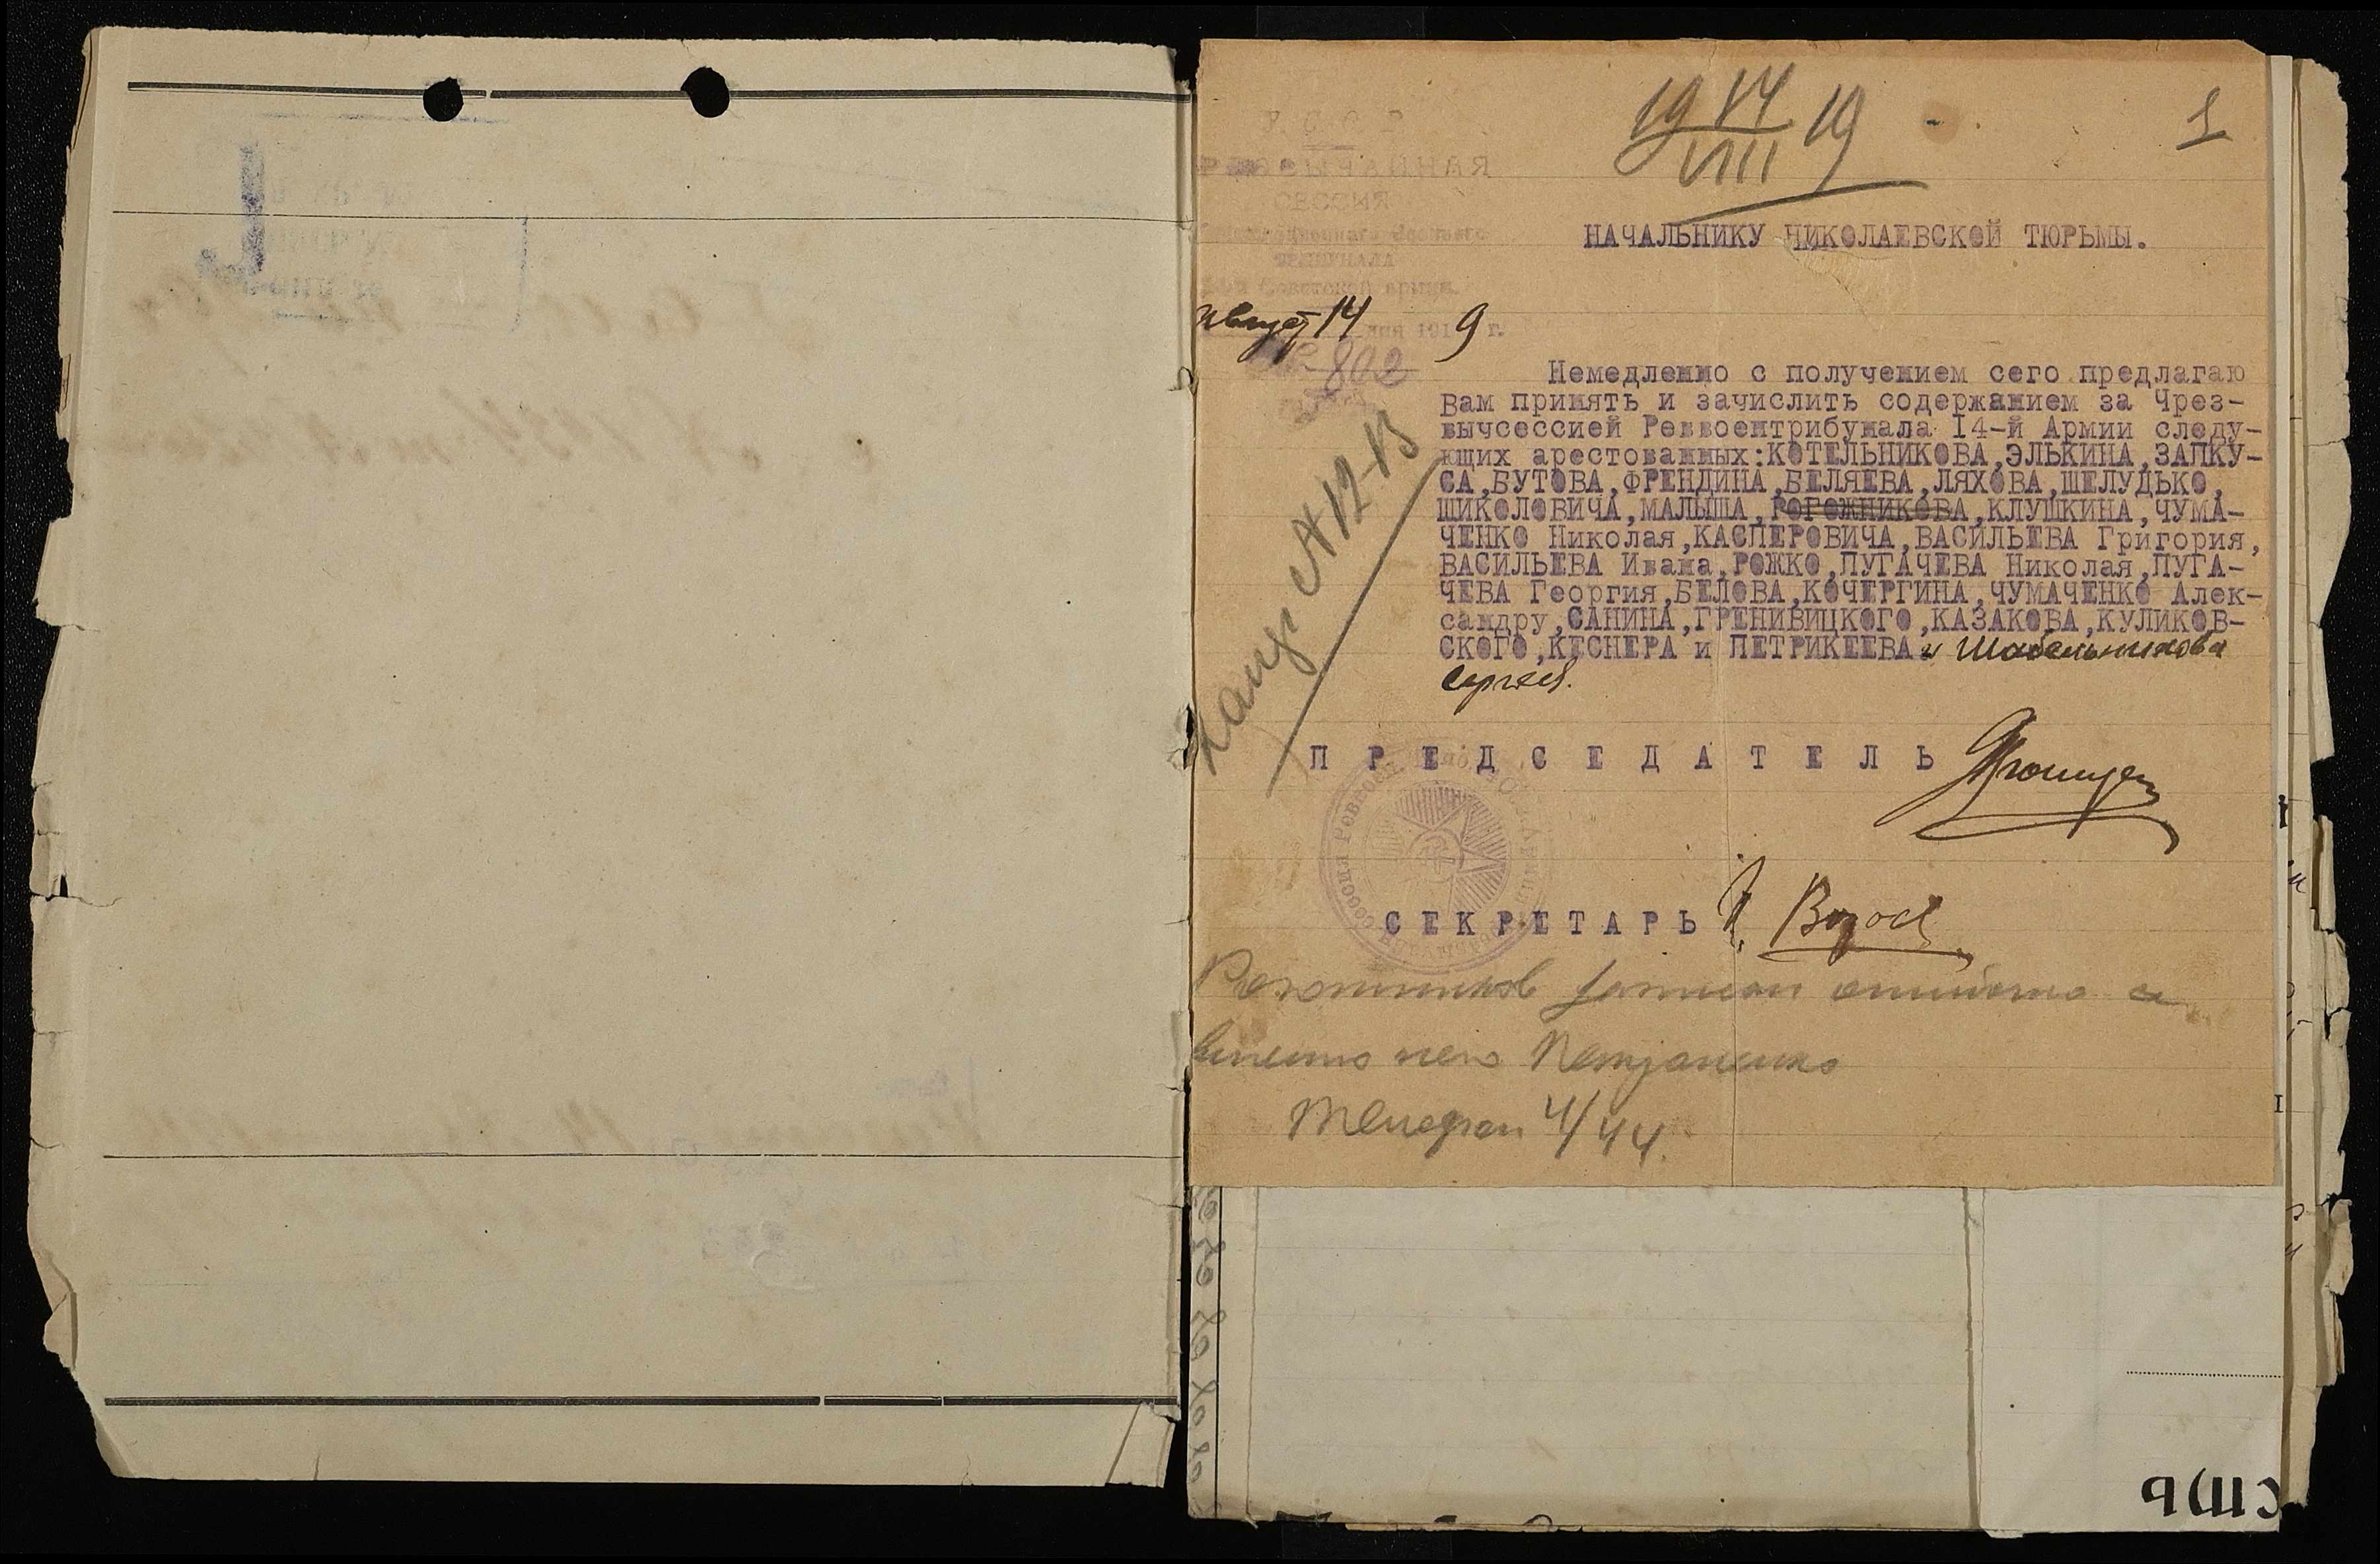 19 14/VIII 19
1
У. С. С. Р.
ЧРЕЗВЫЧАЙНАЯ
СЕССИЯ
ТРИБУНАЛА
Советской армии.
НАЧАЛЬНИКУ НИКОЛАЕВСКОЙ ТЮРЬМЫ.
август 14 дня 1919 г.
№ 802
Немедленно с получением сего предлагаю
Вам принять и зачислить содержанием за Чрез-
вычсессией Реввоентрибунала I4-й Армии следу-
ющих арестованных:КОТЕЛЬНИКОВА,ЭЛЬКИНА,ЗАПКУ-
СА,БУТОВА,ФРЕНДИНА,БЕЛЯЕВА,ЛЯХОВА,ШЕЛУДЬКО,
ШИКОЛОВИЧА,МАЛЫША,РОГОЖНИКОВА,КЛУШКИНА,ЧУМА-
ЧЕНКО Николая,КАСПЕРОВИЧА,ВАСИЛЬЕВА Григория,
ВАСИЛЬЕВА Ивана,РОЖКО,ПУГАЧЕВА Николая,ПУГА-
ЧЕВА Георгия,БЕЛОВА,КОЧЕРГИНА,ЧУМАЧЕНКО Алек-
сандру,САНИНА,ГРЕНИВИЦКОГО,КАЗАКОВА,КУЛИКОВ-
СКОГО,КЕСНЕРА и ПЕТРИКЕЕВА и Шабельникова
Сергея.
ПРЕДСЕДАТЕЛЬ
СЕКРЕТАРЬ
Рогожников записан ошибочно а
вместо него